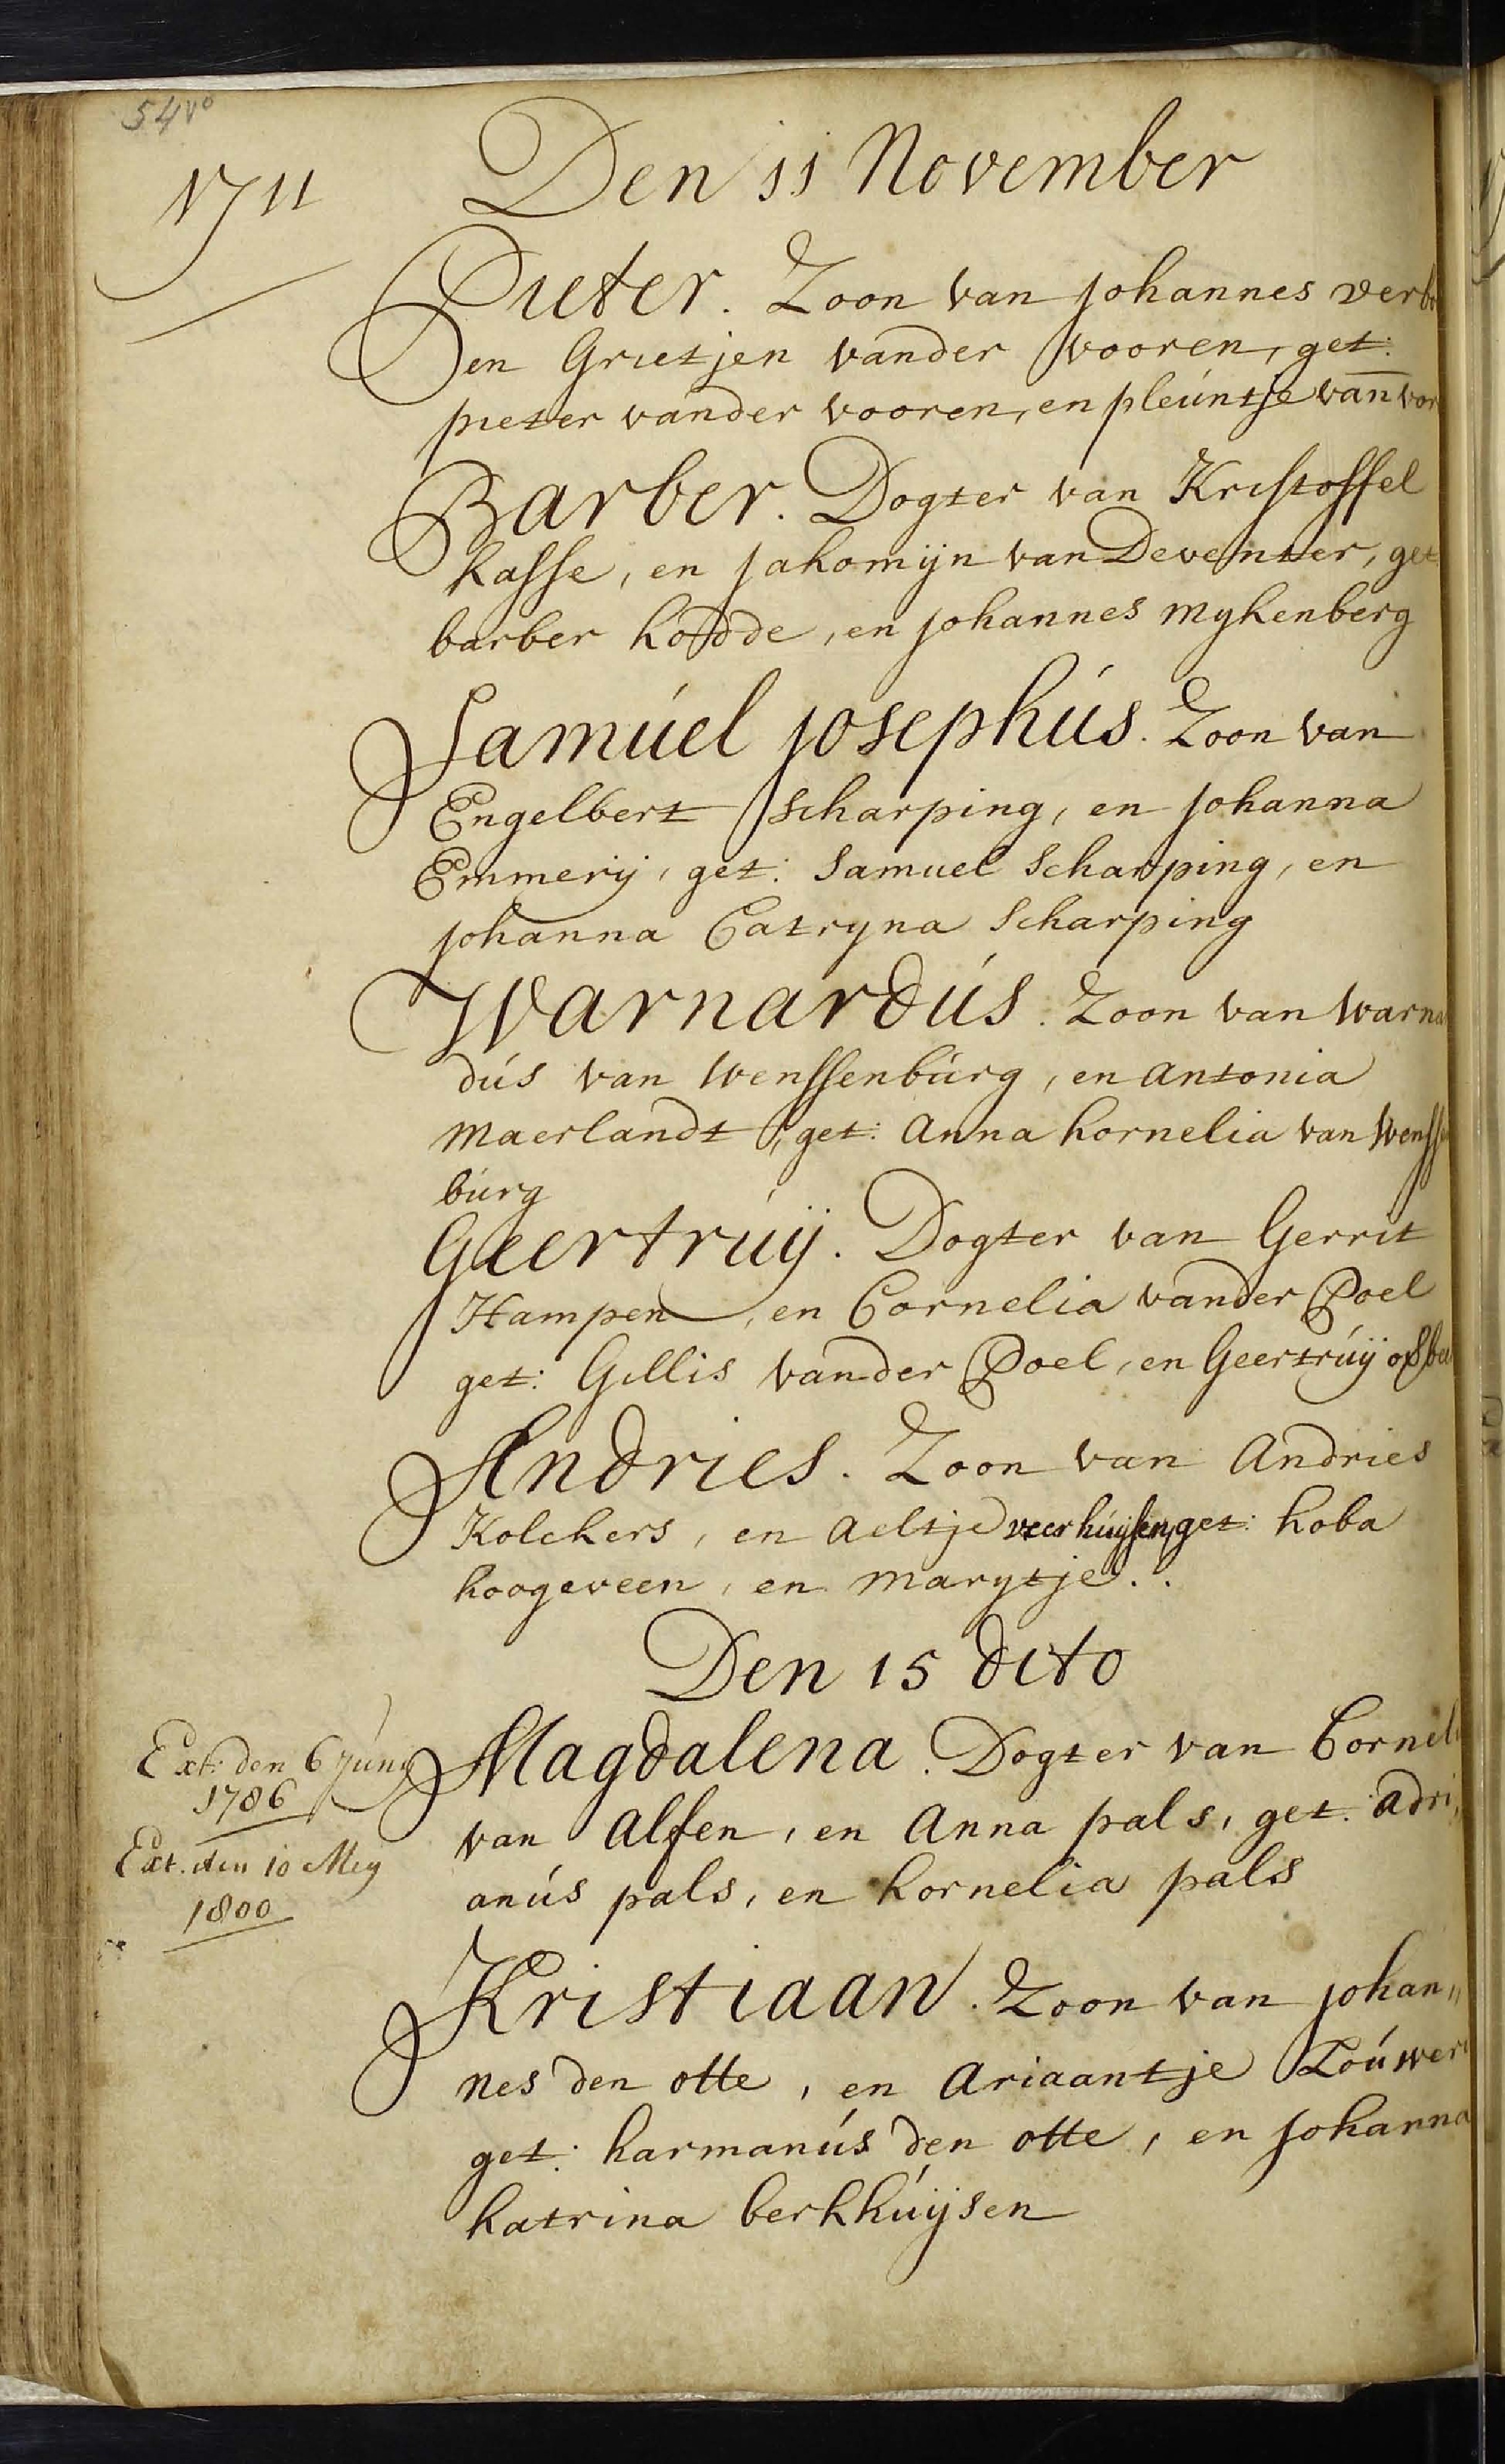 54vo
1711
Den 11 November
Pieter. Zoon van Johannes verb
en Grietjen vander vooren, get:
pieter vander vooren, en pleúntje van̄ vor
Barber. Dogter van Kristoffel
kasse, en Jakomijn van Deventer, get
barber hodde, en Johannes mykenberg
Samúel josephús. Zoon van
Engelbert Scharping, en Johanna
Emmerij, get: Samuel Scharping, en
Johanna Catryna Scharping
Warnardús. Zoon van Warna
dús van Wenssenbúrg, en Antonia
Maerlandt, get: Anna kornelia van Wensse
búrg
Geertrúij. Dogter van Gerrit
Hampen, en Cornelia vander Poel
get: Gillis vander Poel, en Geertrúij
Andries. Zoon van Andries
Kolckers, en Aeltje veerhúijsen, get: koba
hoogeveen, en Marytje..
Den 15 dito
Ext: den 6 Juny
1786
Ext. den 10 Mey
1800
Magdalena. Dogter van Corneli
van Alfen, en Anna pals, get: Adri,
anús pals, en kornelia pals
Kristiaan. Zoon van Johan„
nes den otte, en Ariaantje Loúwer
get: harmanús den otte, en Johanna
katrina berkhúijsen